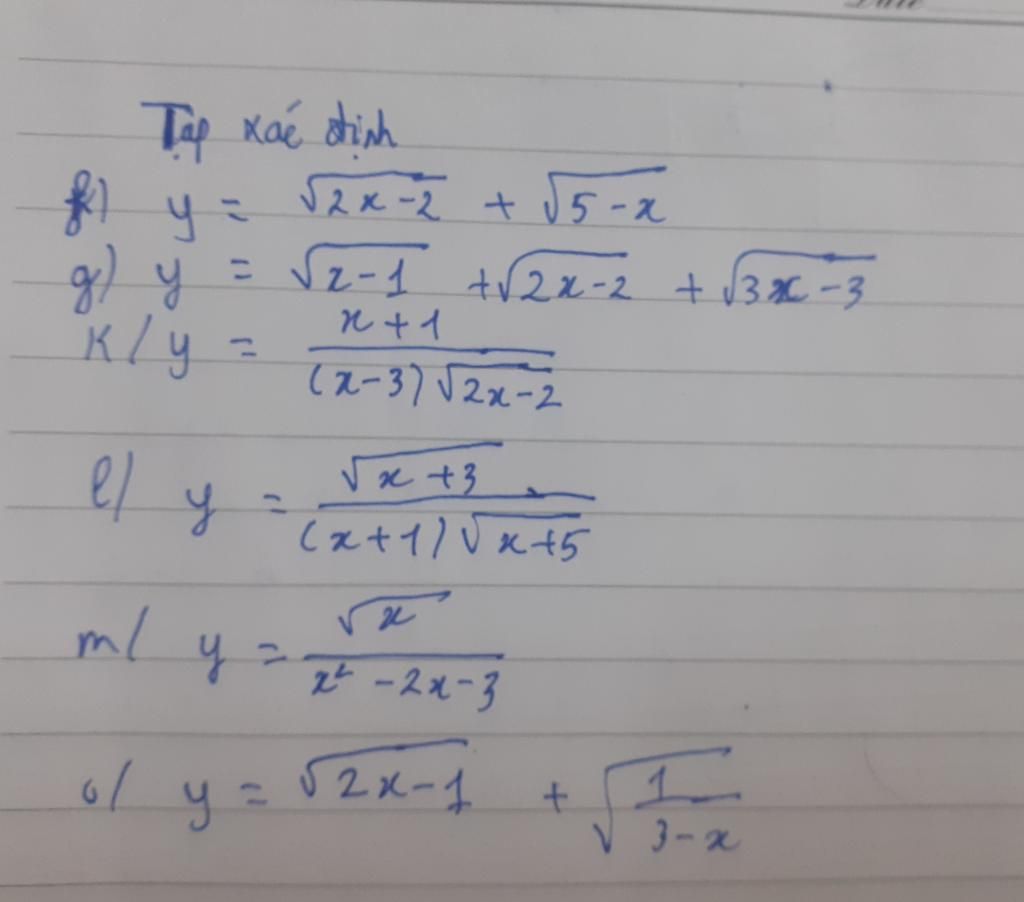 Tập xác định
f) y = √(2x-2) + √(5-x)
g) y = √(x-1) + √(2x-2) + √(3x-3)
K/ y = (x+1)/((x-3)√(2x-2))
l/ y = √(x+3)/((x+1)√(x+5))
m/ y = √x/(x²-2x-3)
o/ y = √(2x-1) + √(1/(3-x))